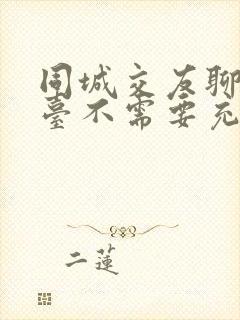 同城交友聊
臺不需要充
二蓮